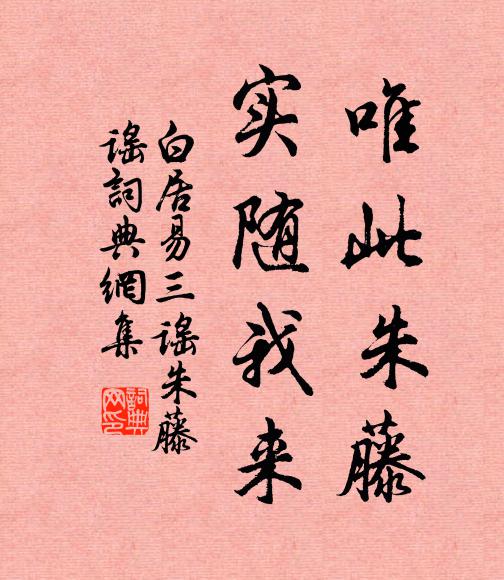 唯此朱藤
实随我来
白居易三谣朱藤
谣詞典網集
詞典
网印